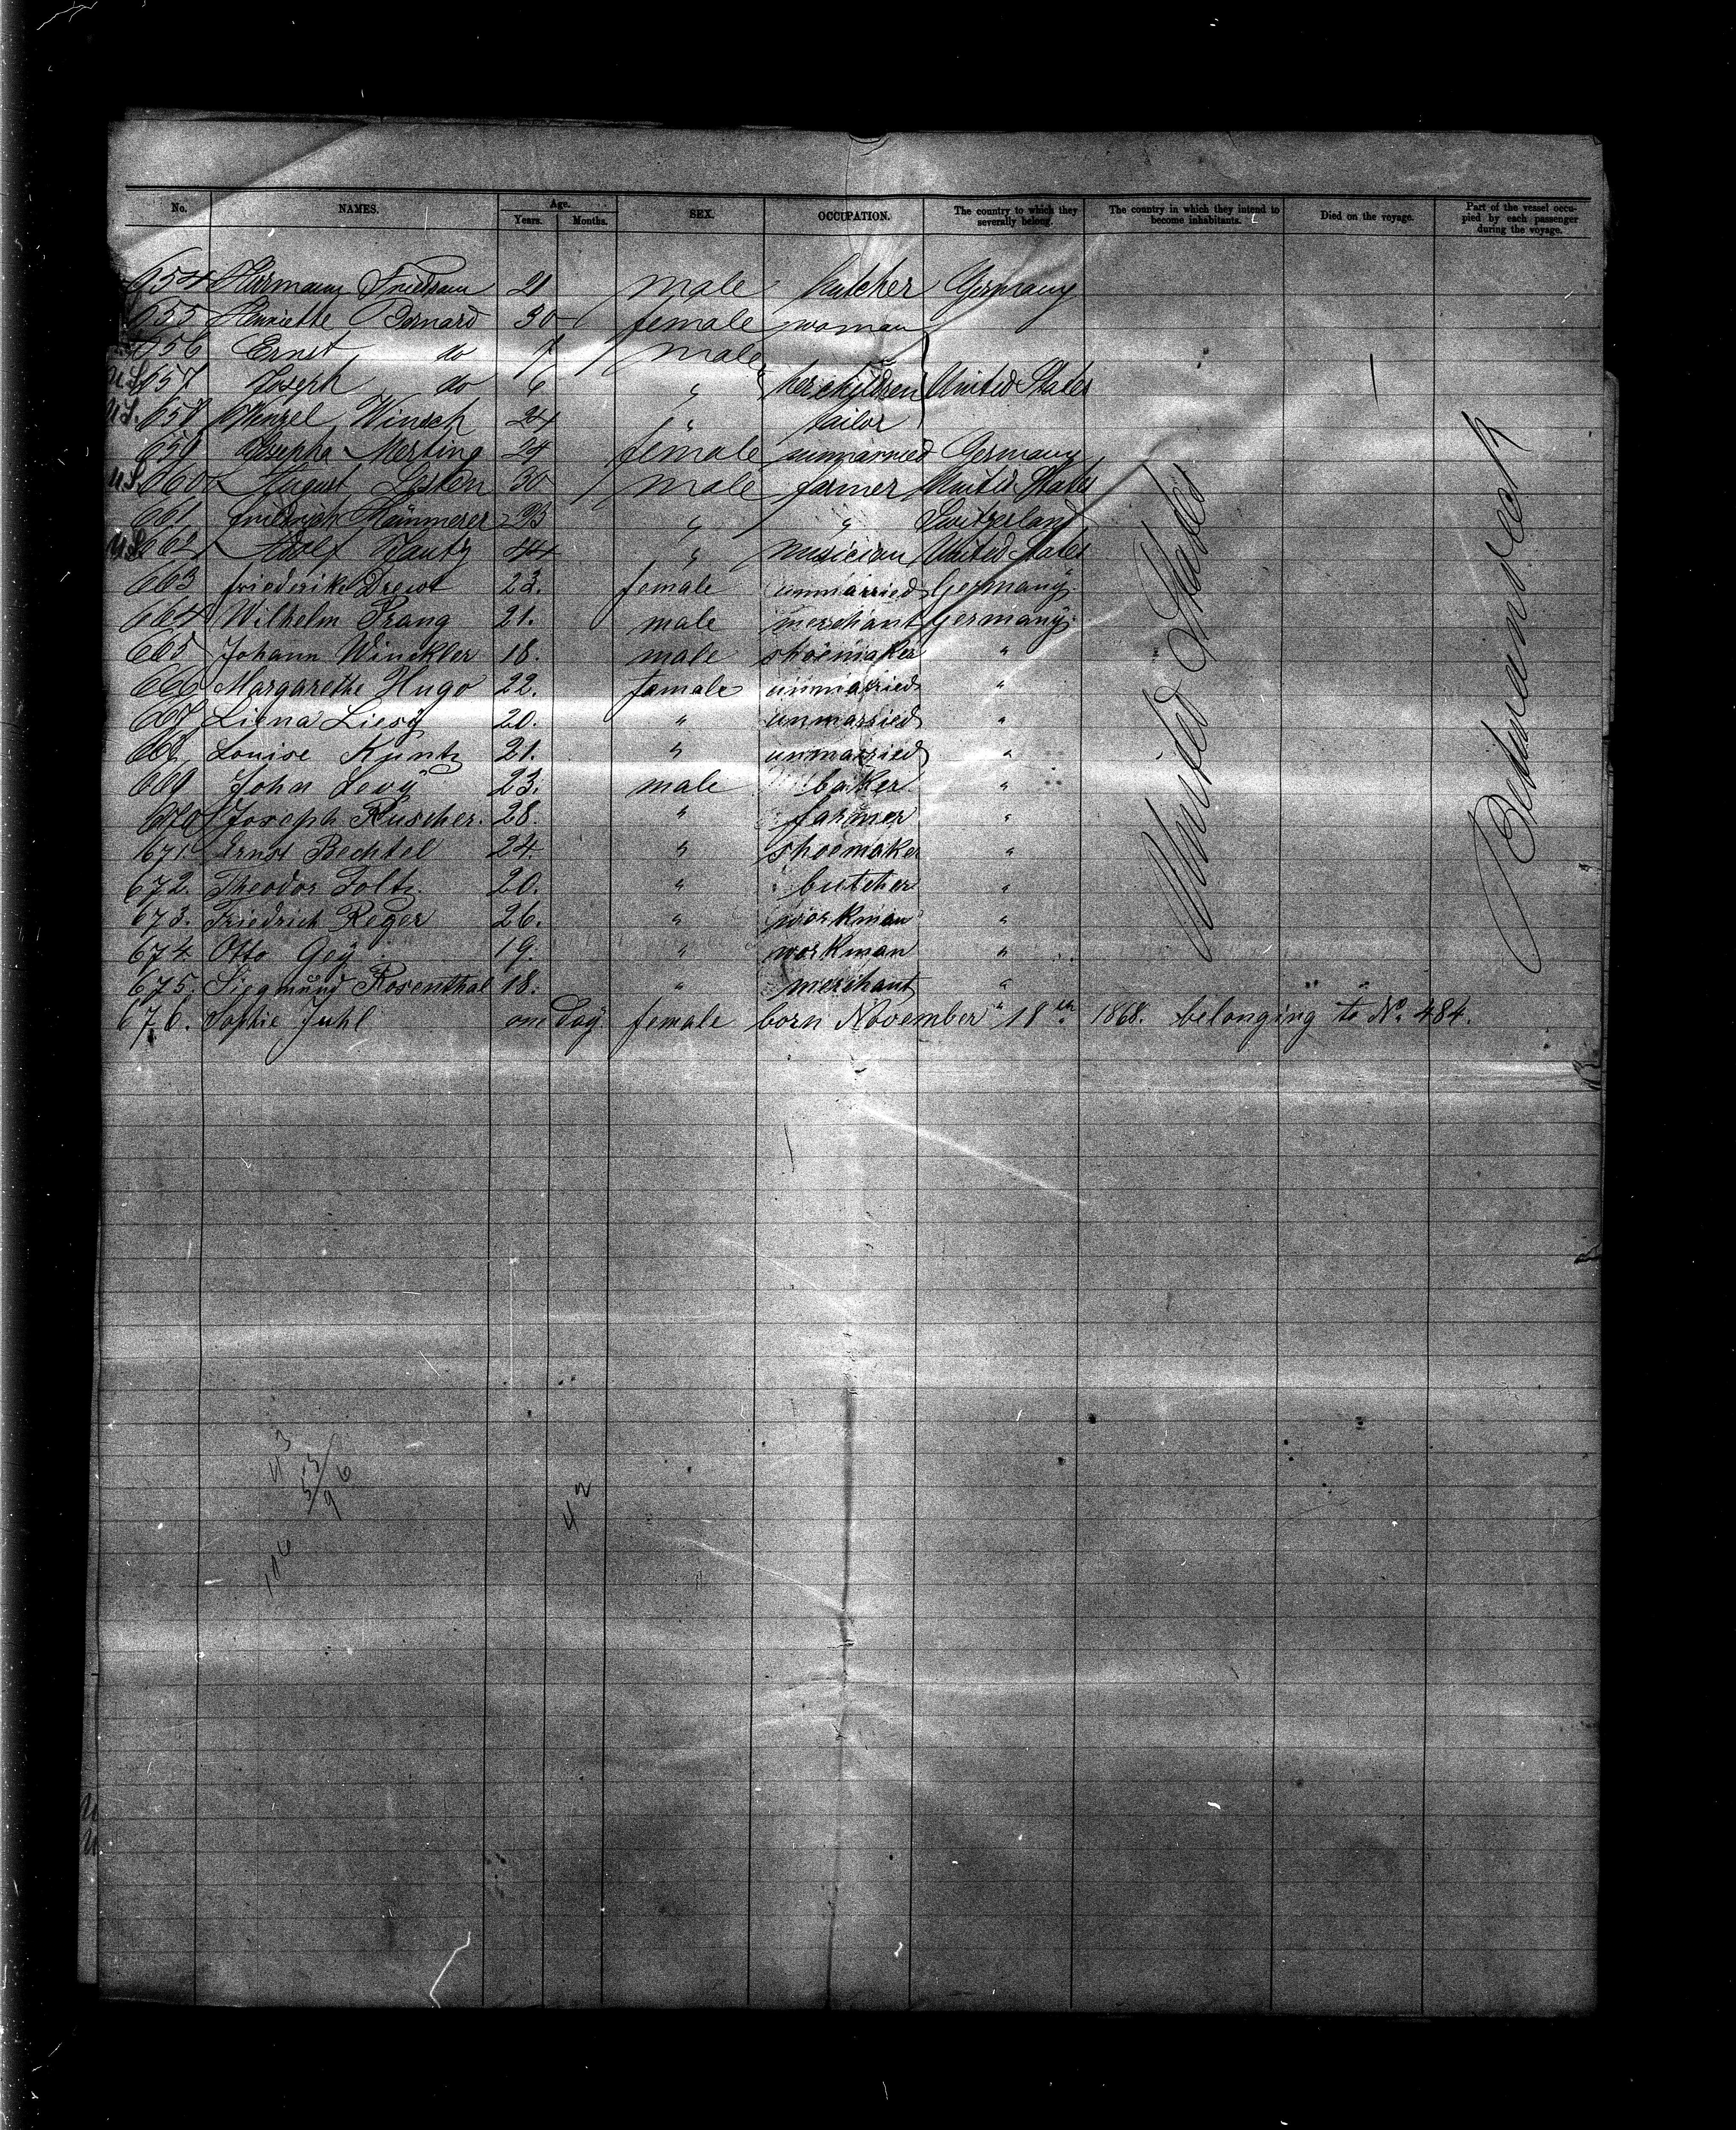 No. NAMES. Age. Years. Months. SEX. OCCUPATION. The country to which they severally belong. The country in which they intend to become inhabitants. Died on the voyage. Part of the vessel occupied by each passenger during the voyage.
654 Hermann 21 male butcher Germany
655 Henriette Bernard 30 female woman
656 Ernst do male
U.S. 657 Joseph do 6 " her children United States
U.S. 658 Wenzel Winsch 24 " tailor
659 Josepha Merting 24 female unmarried Germany
U.S. 660 August 30 male farmer United States
661 Friedrich Kämmerer 23 " " Switzerland
U.S. 662 Adolf 44 " musician United States
663 Friederike Drewt 23. female unmarried Germany.
664 Wilhelm Prang 21. male merchant Germany.
665 Johann Winckler 18. male shoemaker "
666 Margarethe Hugo 22. female unmarried "
667 Liena 20. " unmarried "
668 Louise Kuntz 21. " unmarried "
669 John Levy 23. male baker "
670 Joseph Ruscher. 28. " farmer "
671. Ernst Bechtel 24. " shoemaker "
672. Theodor Foltz. 20. " butcher "
673. Friedrich Reger 26. " workman "
674. Otto Gey 19. " workman "
675. Siegmund Rosenthal 18. " merchant "
676. Sophie Juhl one day female born November 18th 1868. belonging to No. 484.
United States
Between deck
42